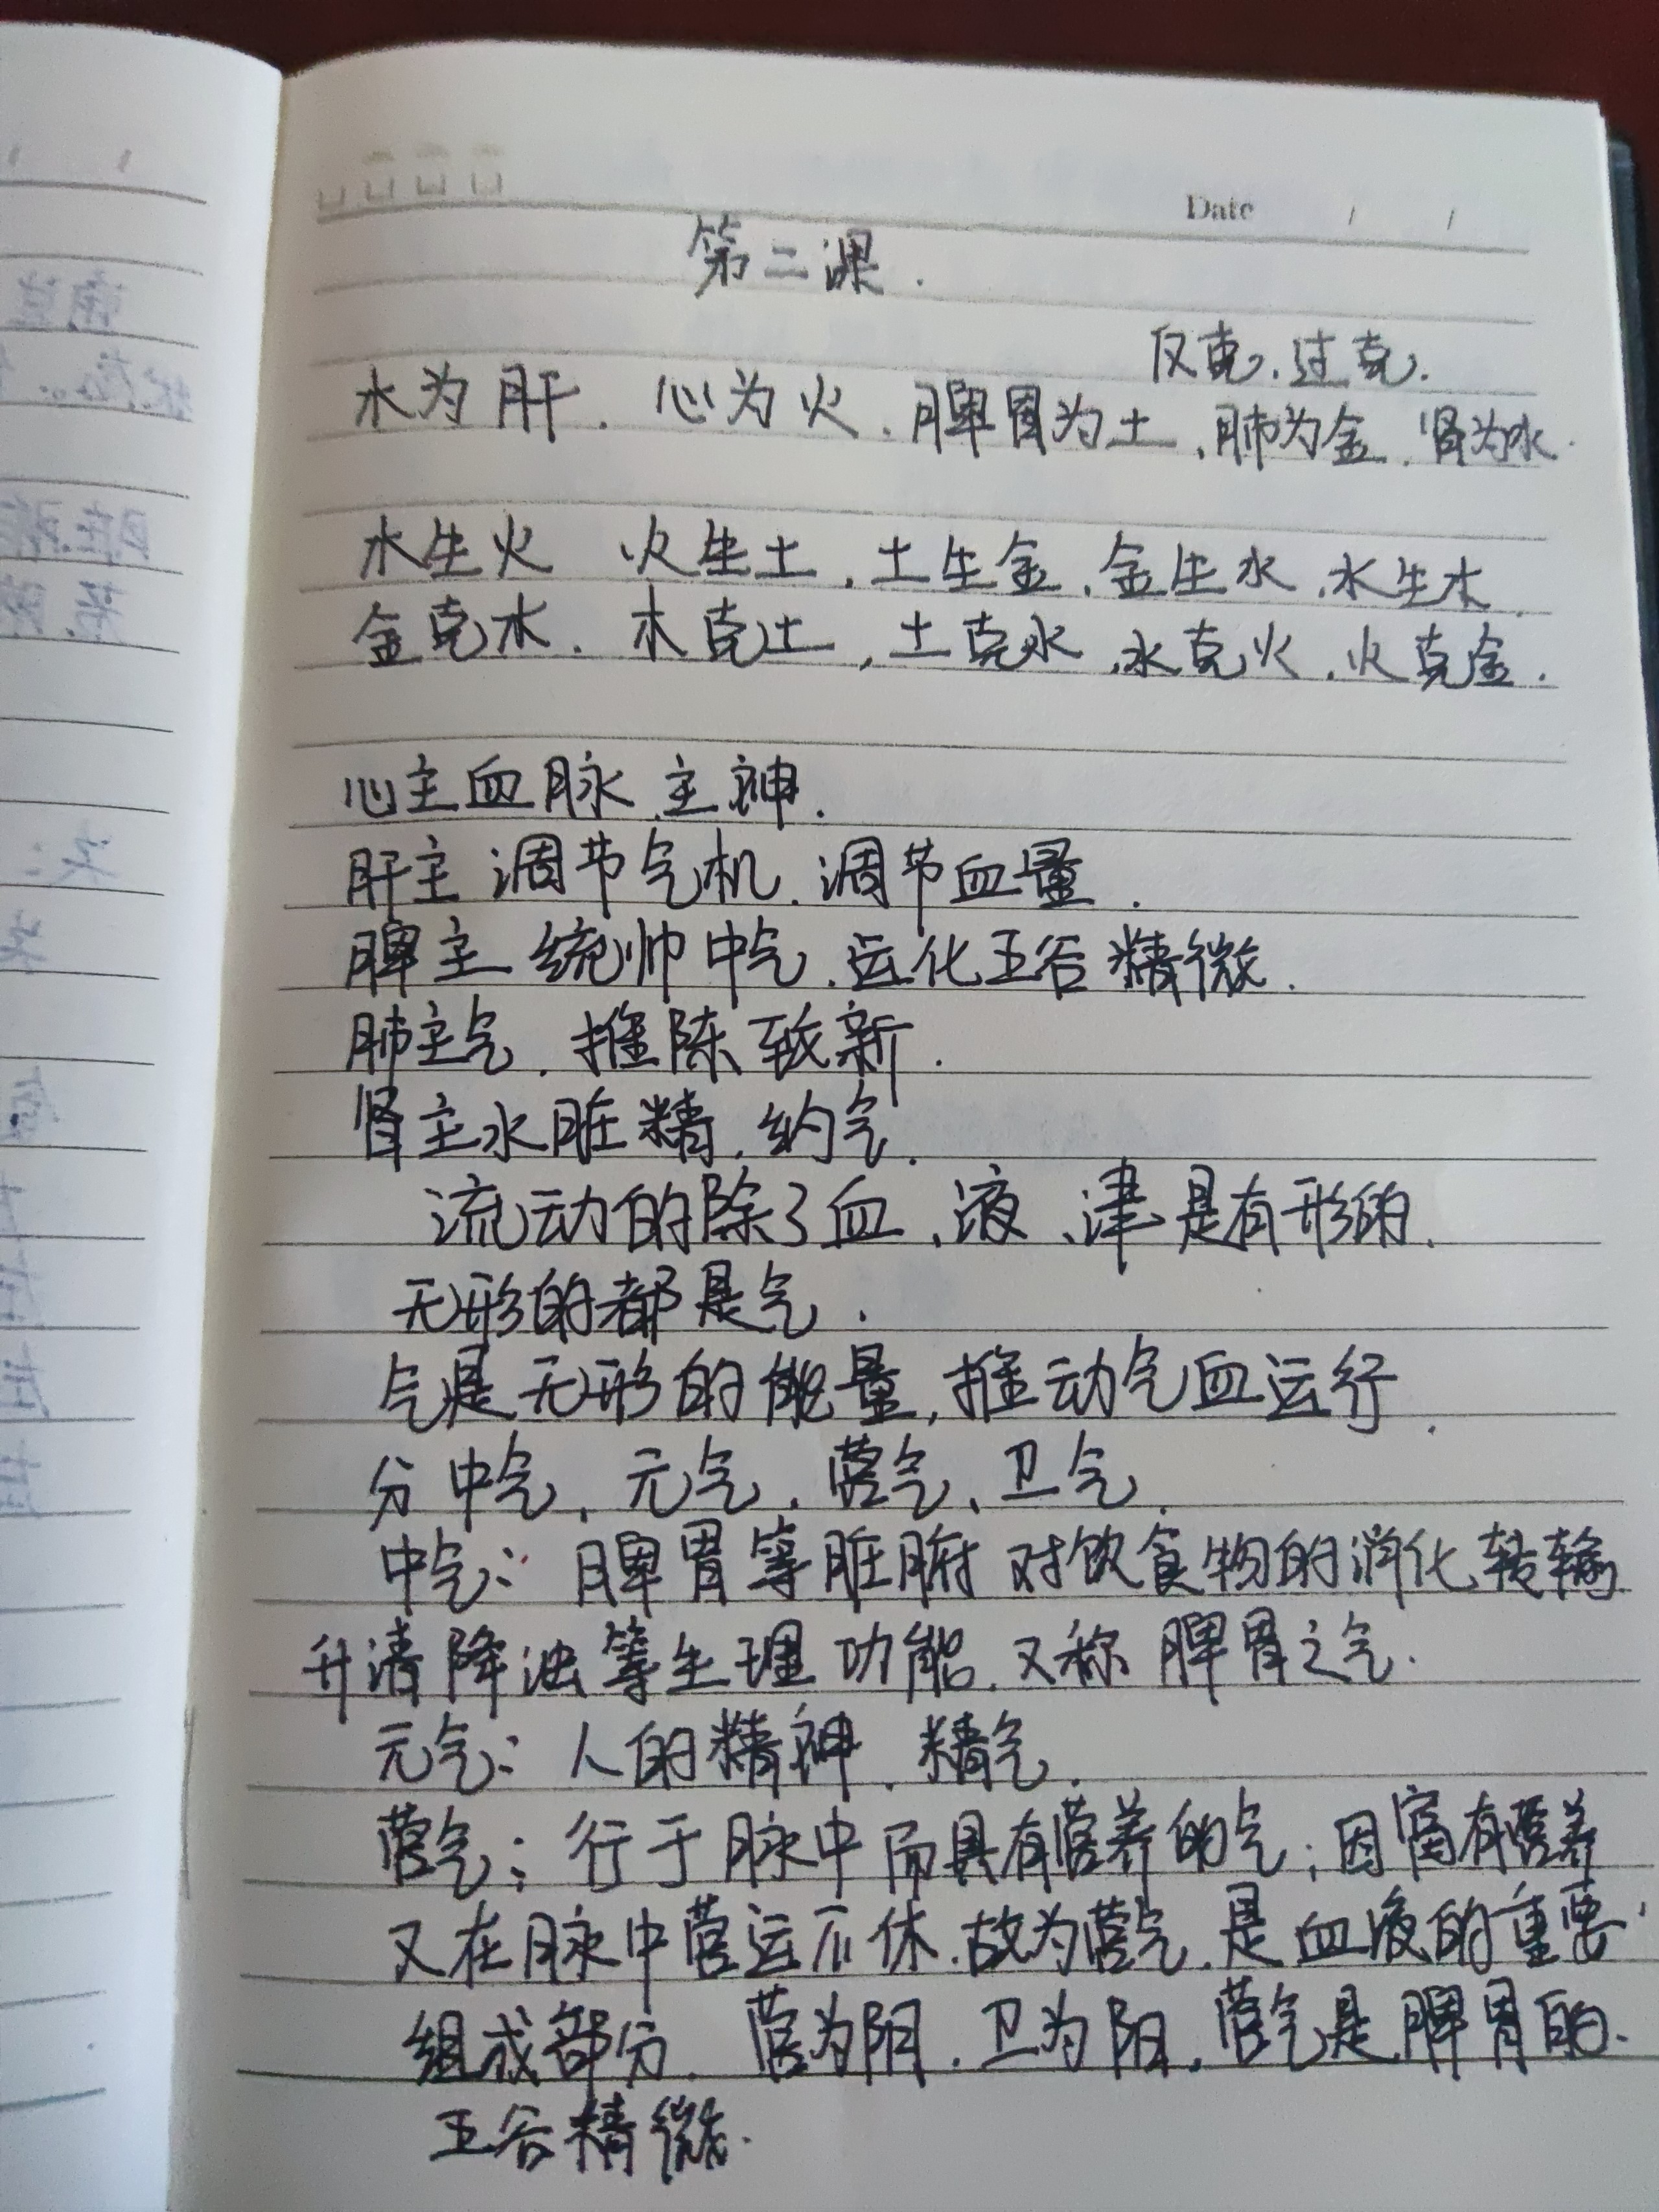 Date / /
第二课.
反克,过克.
木为肝.心为火.脾胃为土,肺为金.肾为水.
木生火 火生土,土生金,金生水,水生木.
金克木.木克土,土克水,水克火,火克金.
心主血脉,主神.
肝主调节气机.调节血量.
脾主统帅中气.运化五谷精微.
肺主气.推陈致新.
肾主水脏精.纳气.
流动的除了血、液、津是有形的.
无形的都是气.
气是无形的能量,推动气血运行.
分中气,元气,营气,卫气.
中气:脾胃等脏腑对饮食物的消化转输
升清降浊等生理功能.又称脾胃之气.
元气:人的精神、精气.
营气:行于脉中而具有营养的气;因富有营养
又在脉中营运不休.故为营气.是血液的重要
组成部分.营为阴.卫为阳.营气是脾胃的.
五谷精微.